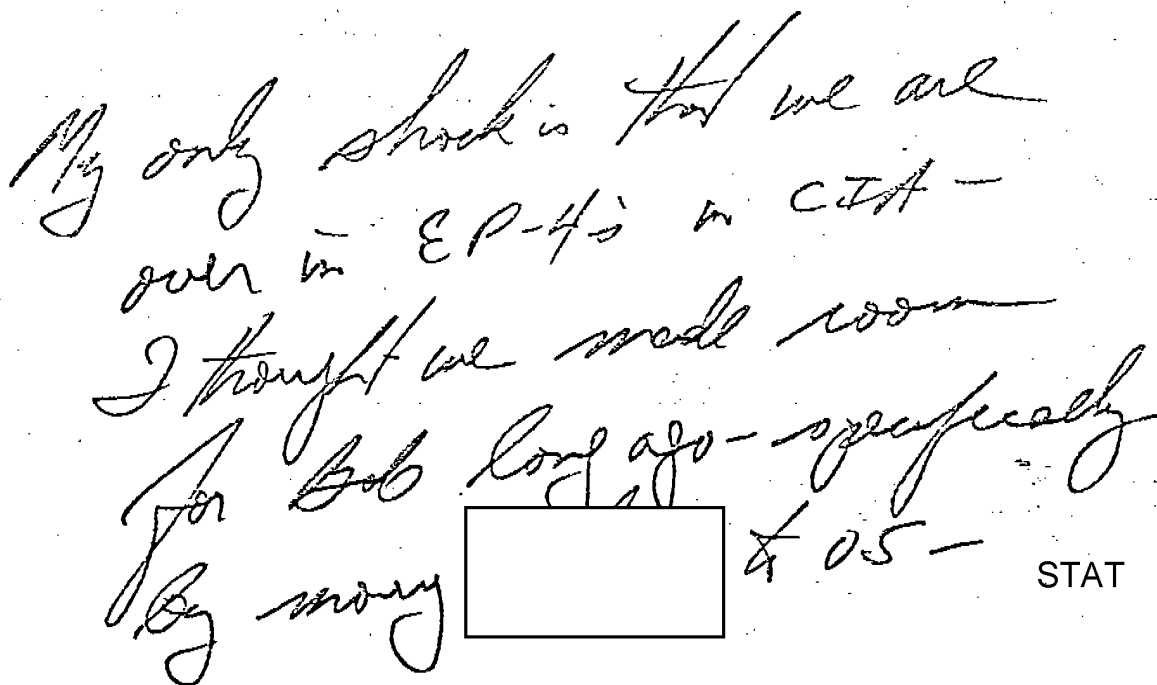 My only shock is that we are
over in EP-4's in CIA -
I thought we made room
for Bob long ago - specifically
By moving to 05 -
STAT